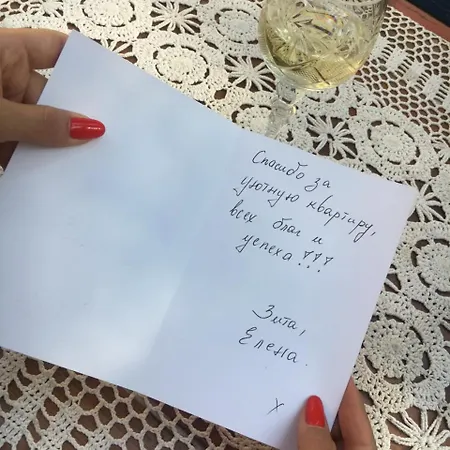 Спасибо за
уютную квартиру,
всех благ и
успеха!!!
Зита,
Елена.
x